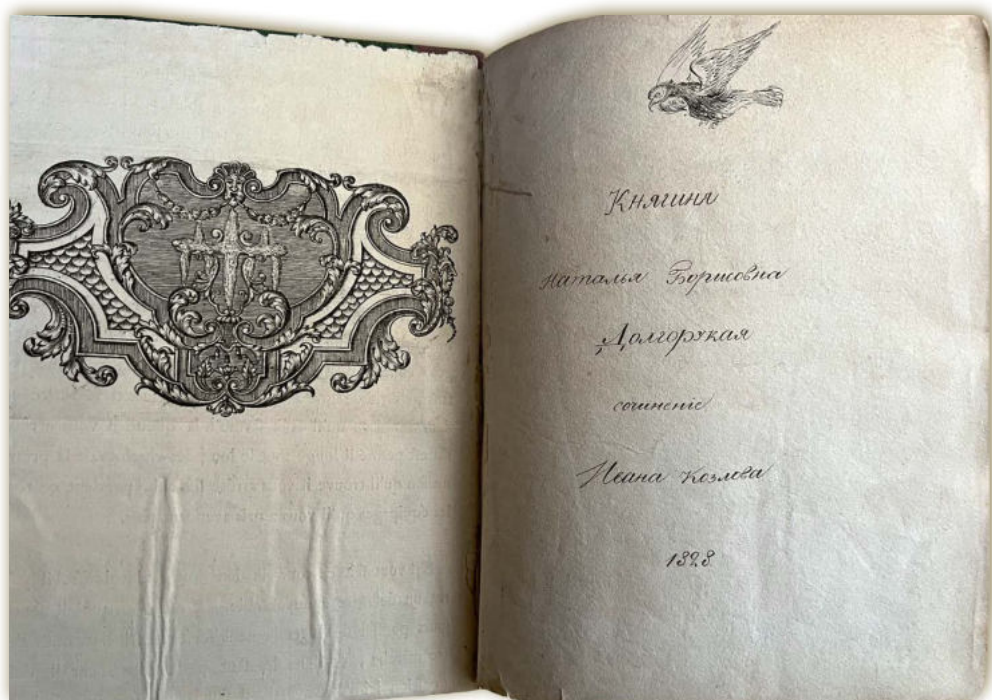 Княгиня
Наталья Борисовна
Долгорукая
сочиненіе
Ивана Козлова
1828